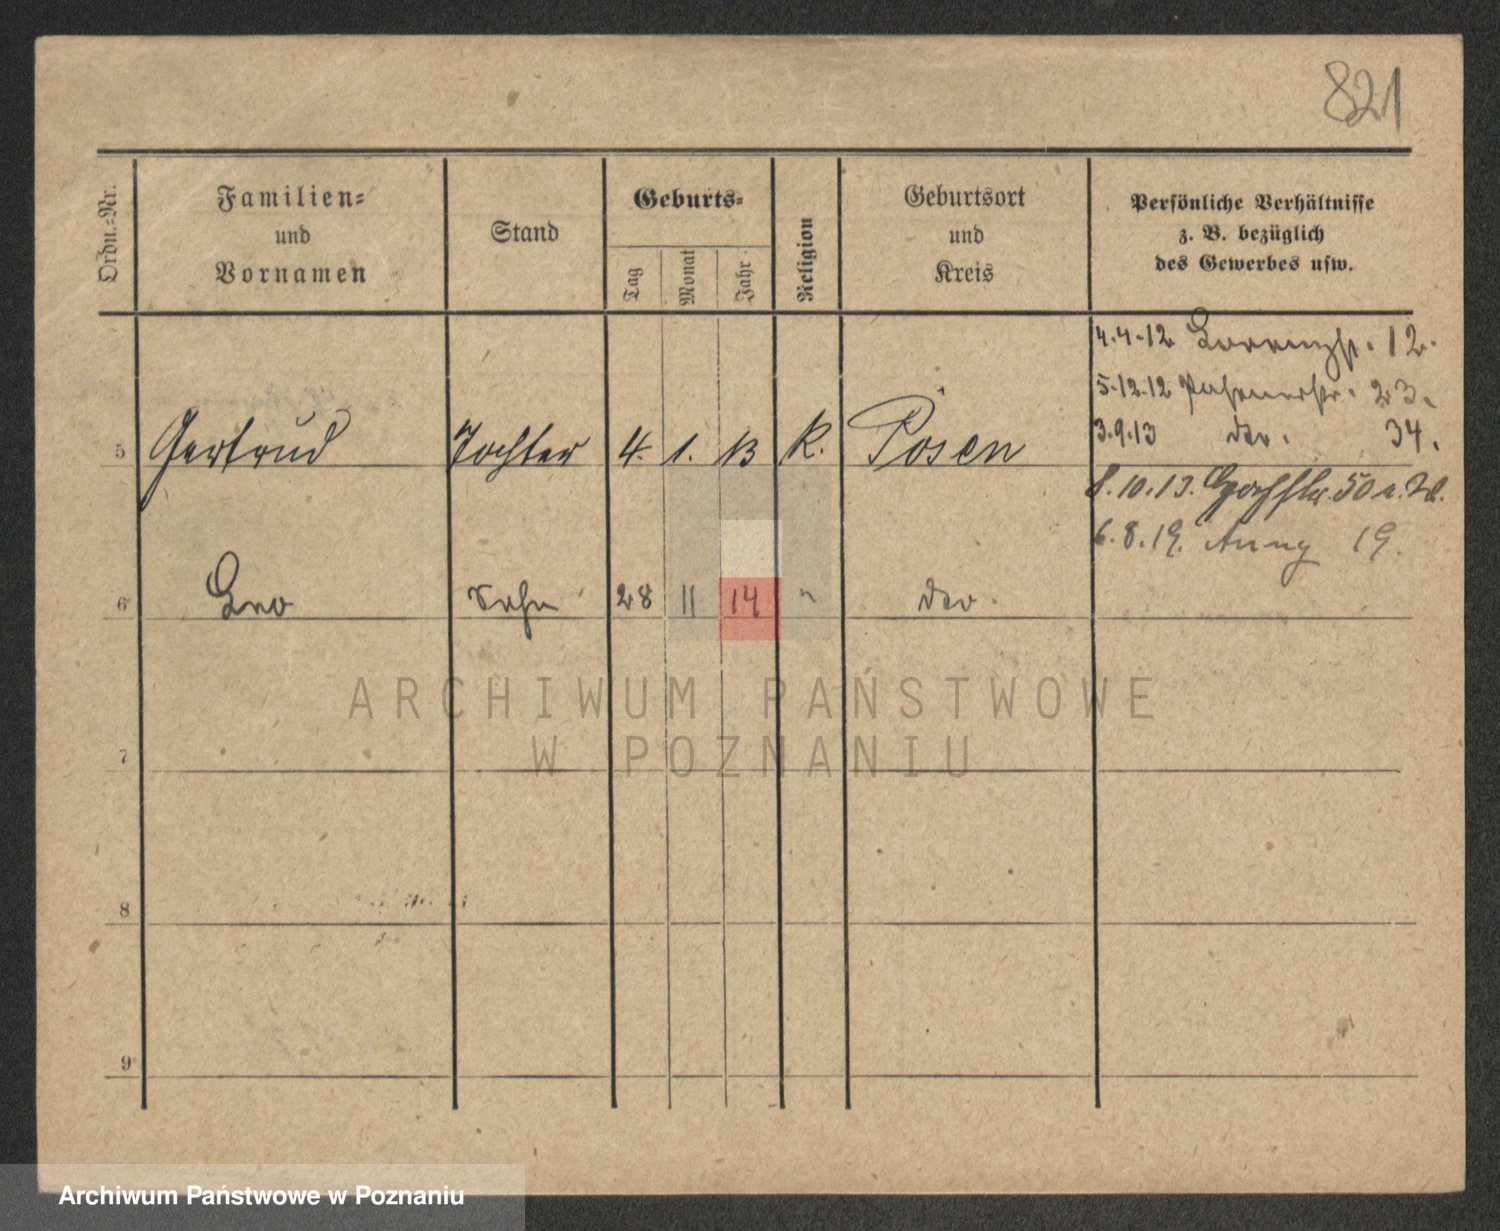 821
Ordn.-Nr.
Familien-
und
Vornamen
Stand
Geburts-
Tag
Monat
Jahr
Religion
Geburtsort
und
Kreis
Persönliche Verhältnisse
z. B. bezüglich
des Gewerbes usw.
4.4.12 12.
5.12.12 23.
3.9.13 dto. 34.
5 Gertrud Tochter 4. 1. 13 K. Posen
8.10.13. 50
6.8.19. 19.
6 Leo Sohn 28 11 14 " dto.
7
8
9
ARCHIWUM PAŃSTWOWE
W POZNANIU
Archiwum Państwowe w Poznaniu